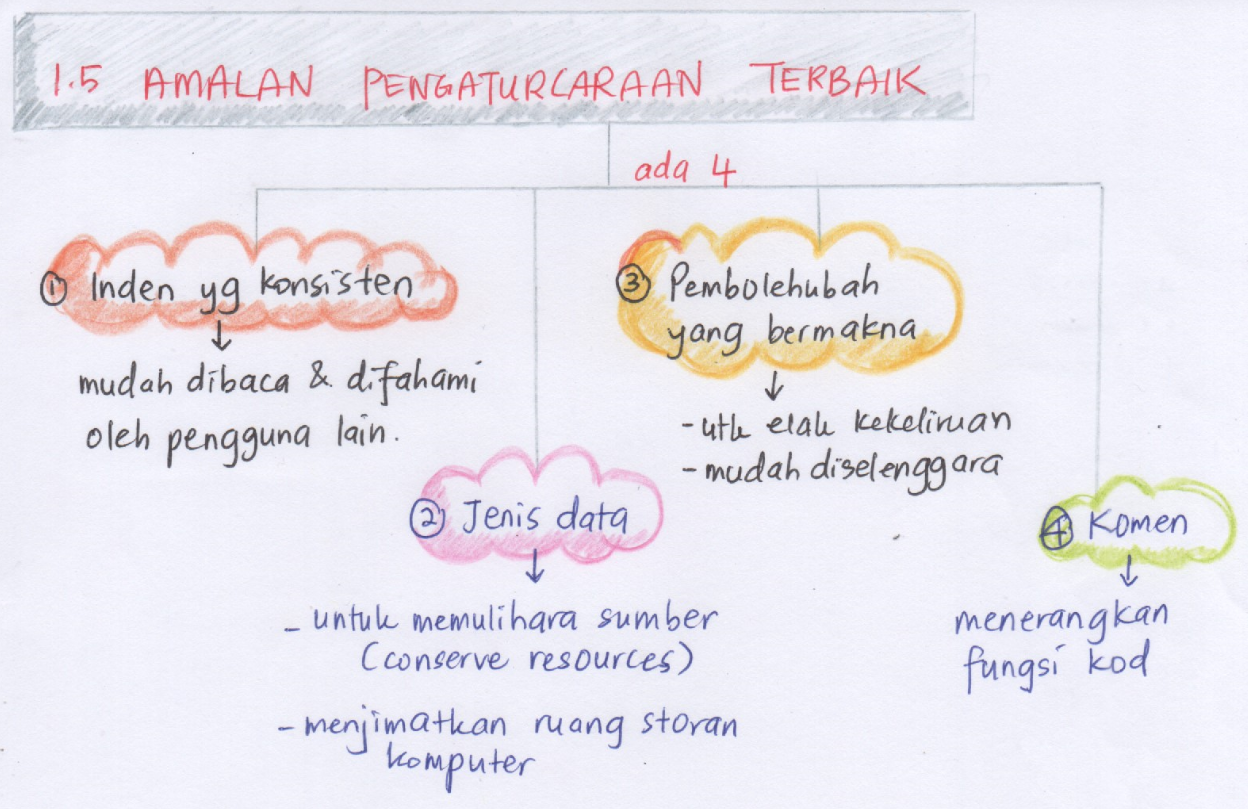 1.5 AMALAN PENGATURCARAAN TERBAIK
ada 4
① Inden yg konsisten
↓
mudah dibaca & difahami
oleh pengguna lain.
② Jenis data
↓
- untuk memulihara sumber
(conserve resources)
- menjimatkan ruang storan
komputer
③ Pembolehubah
yang bermakna
↓
- utk elak kekeliruan
- mudah diselenggara
④ Komen
↓
menerangkan
fungsi kod